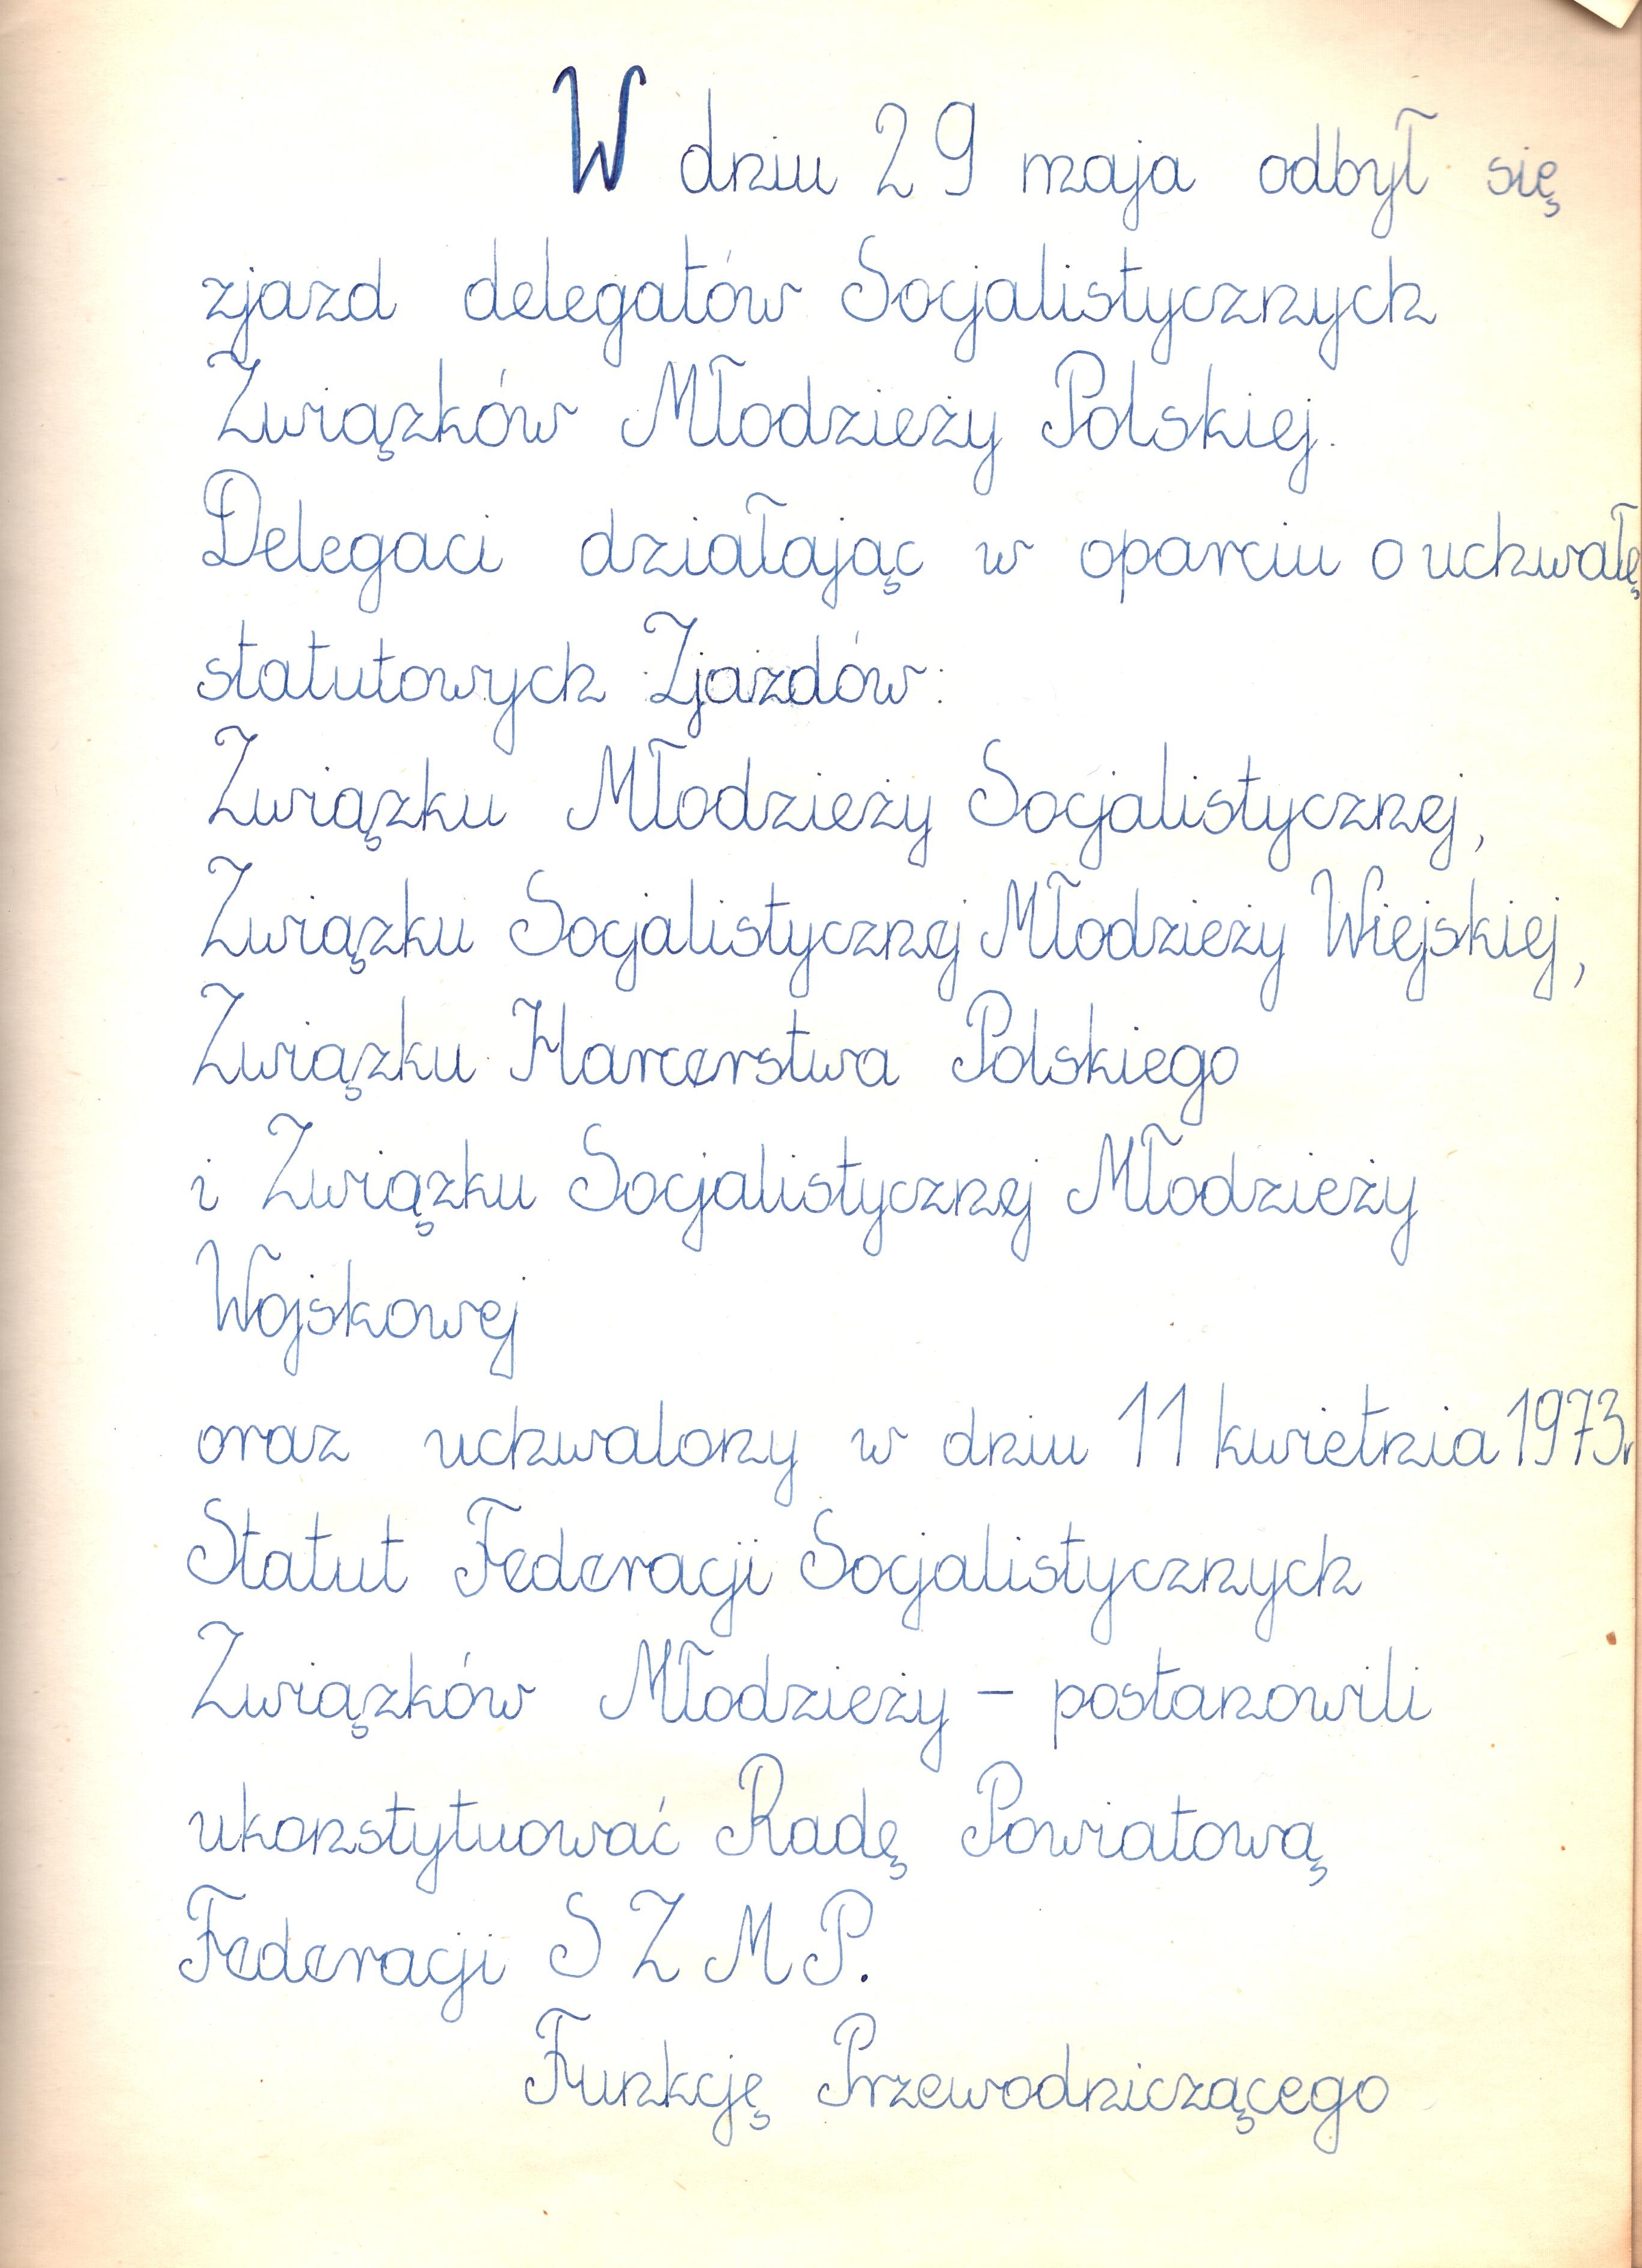 W dniu 29 maja odbył się
zjazd delegatów Socjalistycznych
Związków Młodzieży Polskiej.
Delegaci działając w oparciu o uchwałę
statutowych Zjazdów:
Związku Młodzieży Socjalistycznej,
Związku Socjalistycznej Młodzieży Wiejskiej,
Związku Harcerstwa Polskiego
i Związku Socjalistycznej Młodzieży
Wojskowej
oraz uchwalony w dniu 11 kwietnia 1973r
Statut Federacji Socjalistycznych
Związków Młodzieży – postanowili
ukonstytuować Radę Powiatową
Federacji S Z M P.
Funkcję Przewodniczącego